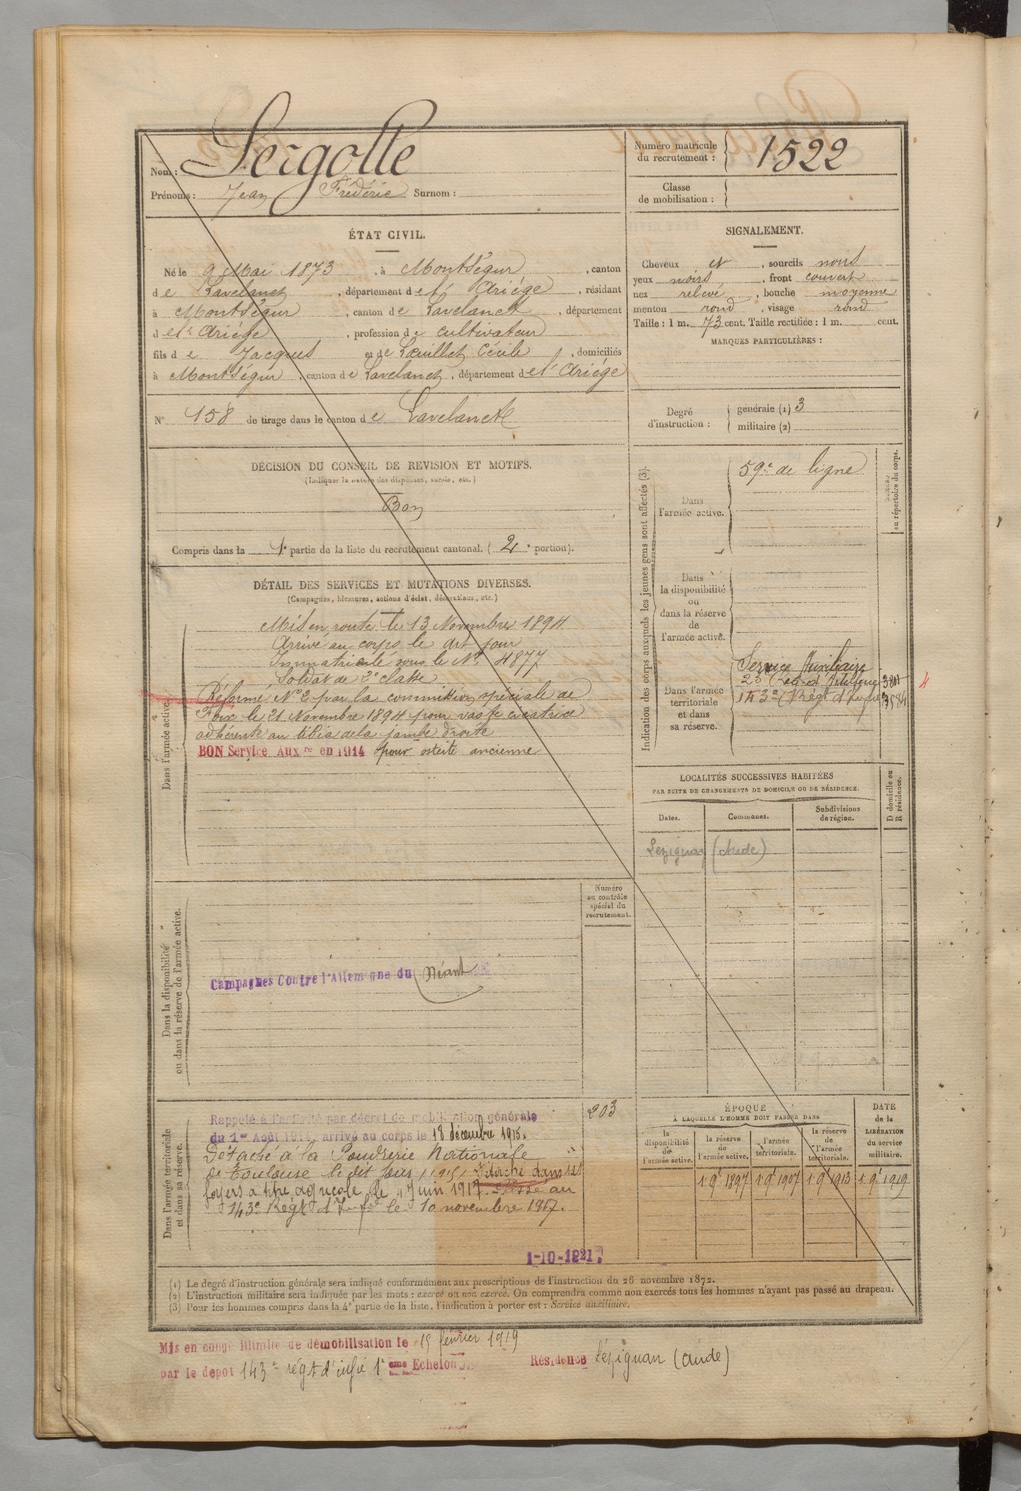 Nom : Sergolle
Prénoms : Jean Frédéric Surnom :
Numéro matricule du recrutement : 1522
Classe de mobilisation :
ÉTAT CIVIL.
Né le 9 Mai 1873, à Montségur, canton
de Lavelanet, département de l'Ariège, résidant
à Montségur, canton de Lavelanet, département
de l'Ariège, profession de cultivateur
fils de Jacques et de Cécile, domiciliés
à Montségur, canton de Lavelanet, département de l'Ariège
N° 158 de tirage dans le canton de Lavelanet
SIGNALEMENT.
Cheveux et, sourcils noirs
yeux noirs, front couvert
nez relevé, bouche moyenne
menton rond, visage rond
Taille : 1 m. 73 cent. Taille rectifiée : 1 m. cent.
MARQUES PARTICULIÈRES :
Degré d'instruction : générale (1) 3
militaire (2)
DÉCISION DU CONSEIL DE REVISION ET MOTIFS.
(Indiquer la nature des dispenses, sursis, etc.)
Bon
Compris dans la 1e partie de la liste du recrutement cantonal. (2e portion).
DÉTAIL DES SERVICES ET MUTATIONS DIVERSES.
(Campagnes, blessures, actions d'éclat, décorations, etc.)
Dans l'armée active.
Mis en route le 13 Novembre 1894
Arrivé au corps le dit jour
Immatriculé sous le N° 4877
Soldat de 2e classe
Réformé N° 2 par la commission spéciale de
Foix le 21 Novembre 1894 pour vaste cicatrice
adhérente au tibia de la jambe droite
BON Service Auxre en 1914 pour ostéite ancienne
Indication des corps auxquels les jeunes gens sont affectés (3).
Dans l'armée active.
59e de ligne
au répertoire du corps.
Dans la disponibilité ou dans la réserve de l'armée active.
Dans l'armée territoriale et dans sa réserve.
Service Auxiliaire
143e Régt d'Infie
LOCALITÉS SUCCESSIVES HABITÉES
PAR SUITE DE CHANGEMENTS DE DOMICILE OU DE RÉSIDENCE.
Dates. Communes. Subdivisions de région. D domicile ou R résidence.
Lézignan (Aude)
Dans la disponibilité ou dans la réserve de l'armée active.
Numéro au contrôle spécial du recrutement.
Campagnes Contre l'Allemagne du Néant
Dans l'armée territoriale et dans sa réserve.
Rappelé à l'activité par décret de mobilisation générale
du 1er Août 1914, arrivé au corps le 18 décembre 1915.
Détaché à la Poudrerie Nationale
de Toulouse le dit jour (1915) Détaché dans ses
foyers à titre agricole le 1 Juin 1917. Passé au
143e Régt d'Infie le 10 novembre 1917.
203
1-10-1921
ÉPOQUE
À LAQUELLE L'HOMME DOIT PASSER DANS
la disponibilité de l'armée active. la réserve de l'armée active. l'armée territoriale. la réserve de l'armée territoriale.
DATE de la LIBÉRATION du service militaire.
1 9e 1897 1 9e 1907 1 9e 1913 1 9e 1919
(1) Le degré d'instruction générale sera indiqué conformément aux prescriptions de l'instruction du 26 novembre 1872.
(2) L'instruction militaire sera indiquée par les mots : exercé ou non exercé. On comprendra comme non exercés tous les hommes n'ayant pas passé au drapeau.
(3) Pour les hommes compris dans la 4e partie de la liste, l'indication à porter est : Service auxiliaire.
Mis en congé illimité de démobilisation le 15 février 1919
par le dépot 143e régt d'infie 1e eme Echelon Résidence Lézignan (Aude)